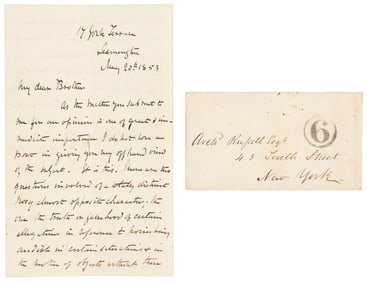 17 York Terrace
Leamington
May 20th 1853
My dear Brother
As the matter you submit to
me for an opinion is one of great & im-
mediate importance I do not lose an
hour in giving you my off hand view
of the subject. It is this. There are two
questions involved of a totally distinct
nay almost opposite character, the
one the truth or falsehood of certain
allegations in reference to
in certain & in
the motion of objects without
Archd Russell Esqr
45 Street
New York.
6